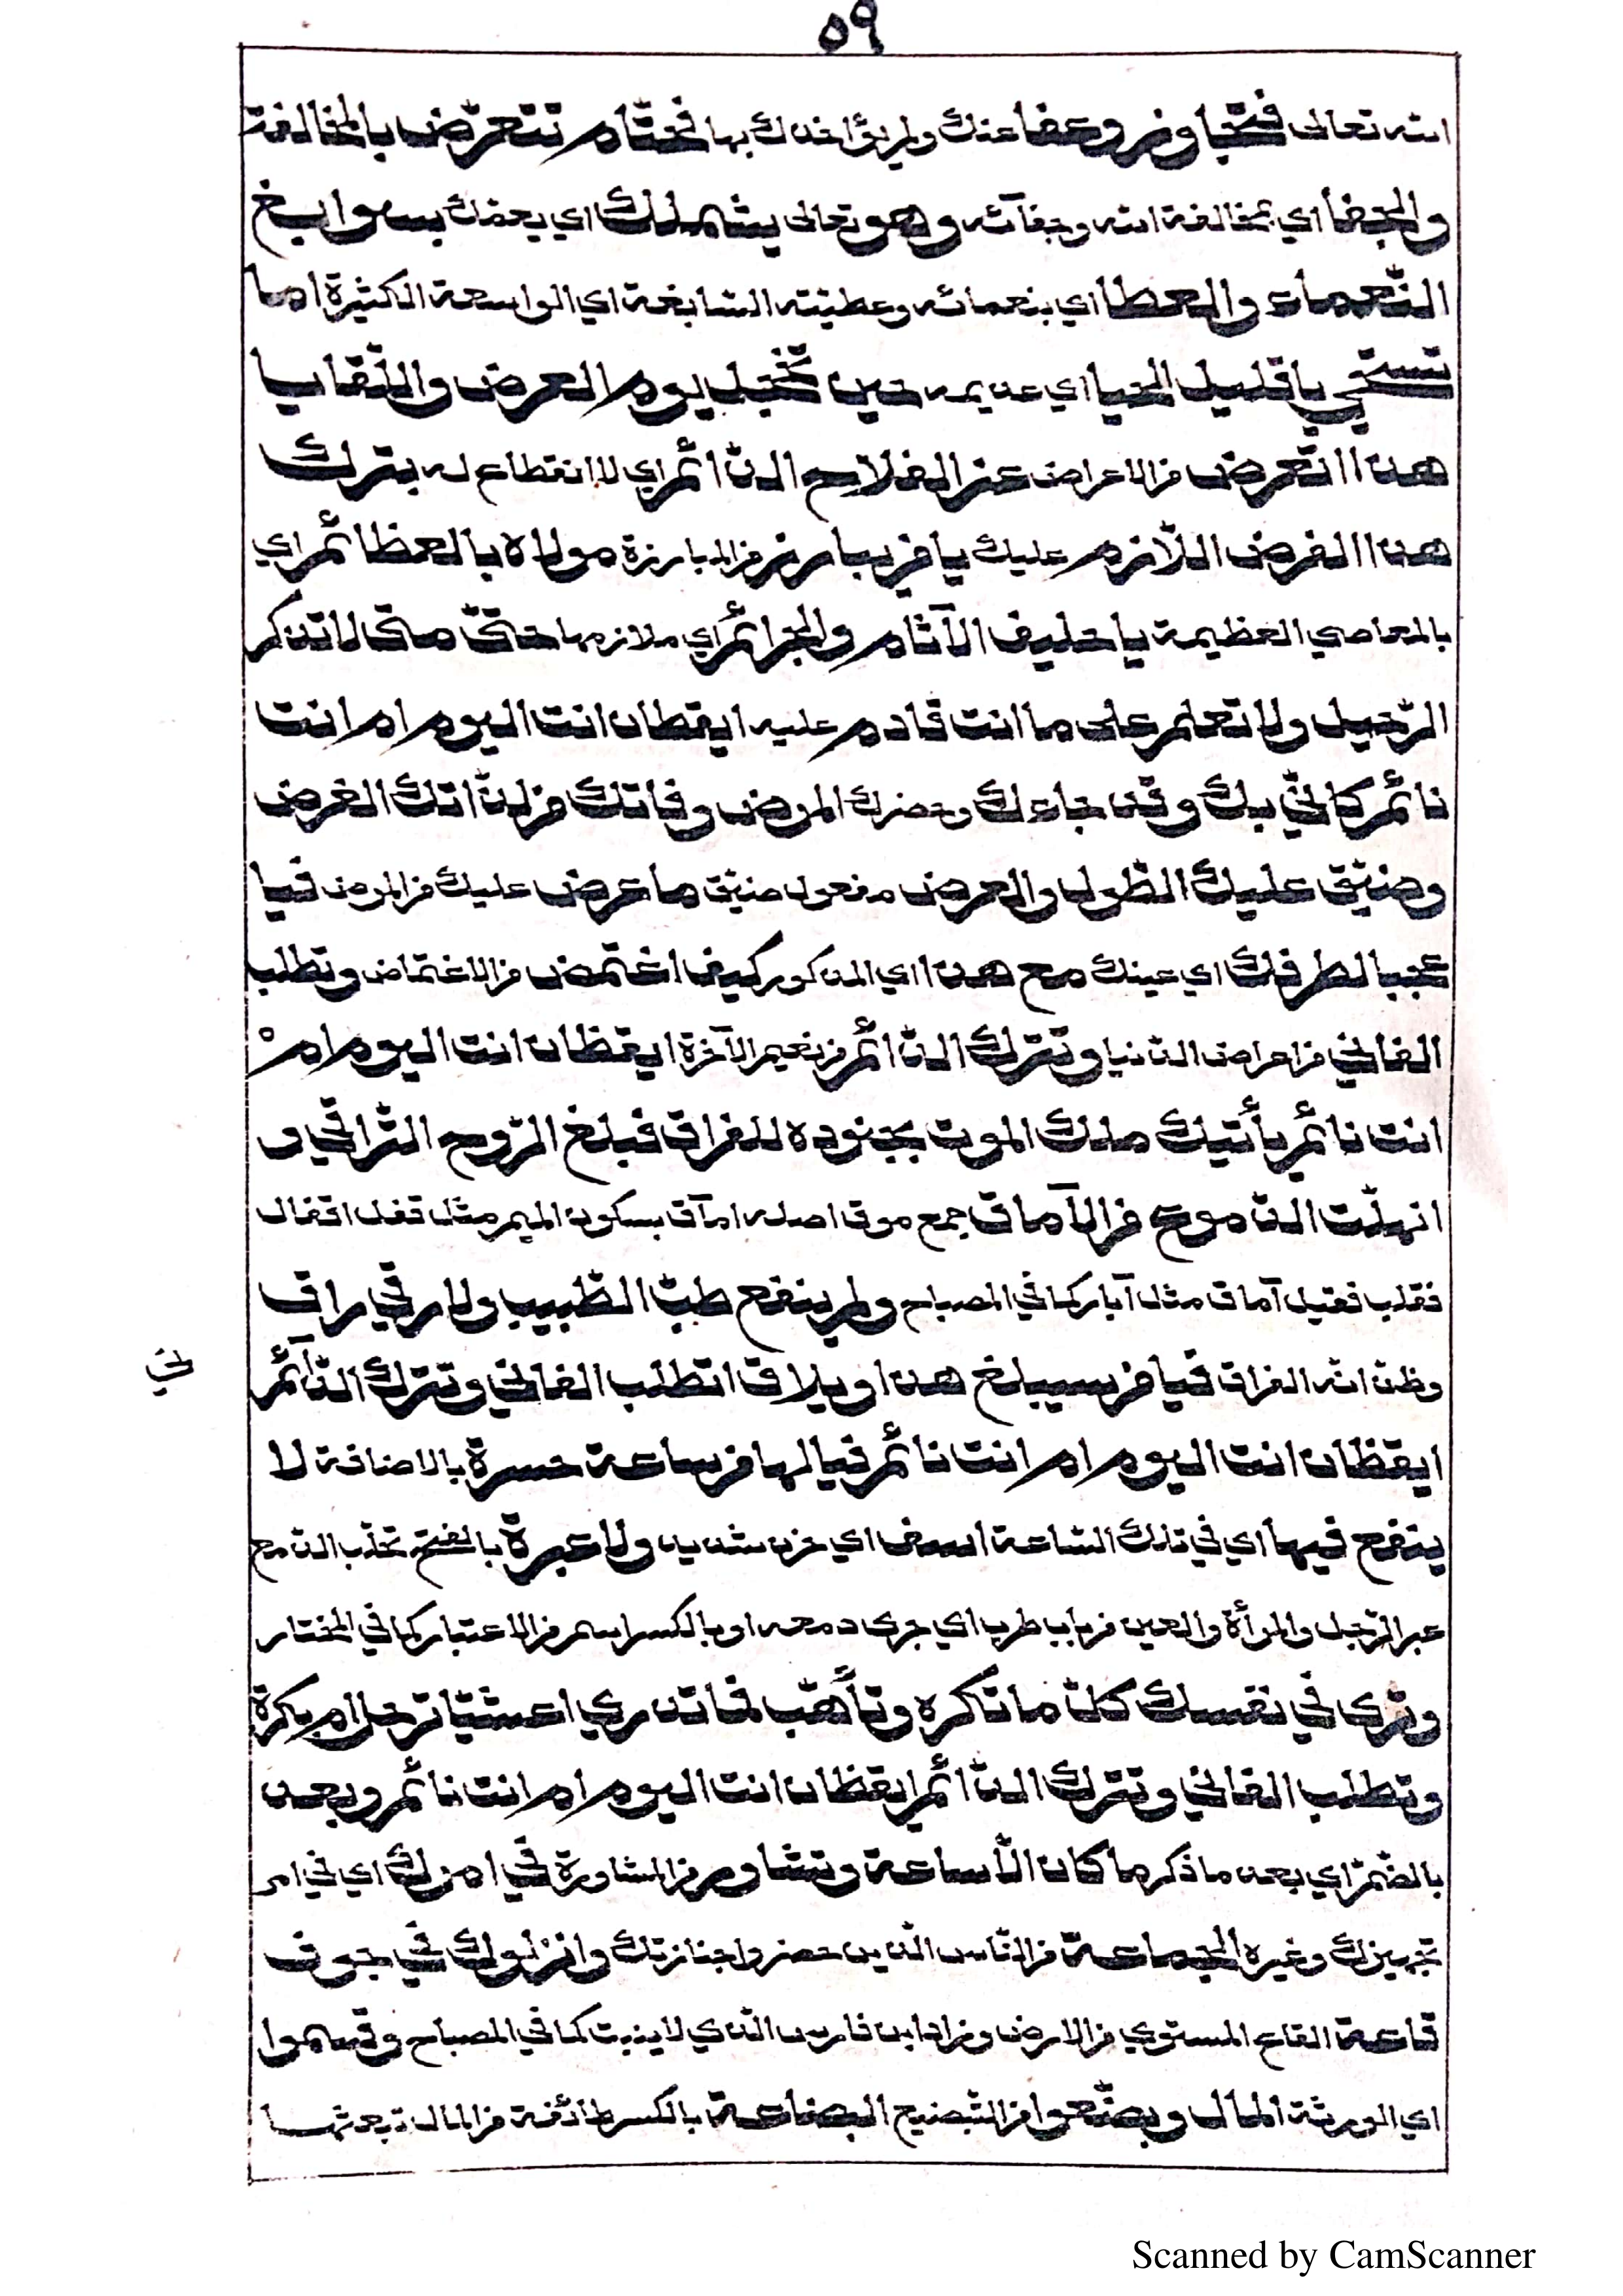 ٥٩
الله تعالى فتجاوز وعفا عنك ولم يؤاخذك بها فحتام تتعرّض بالمخالفة
والجفا أي بمخالفة الله وجفآئه وهو تعالى يشملك اي يعمّك بسوابغ
النّعماء والعطا اي بنعمائه وعطيّته السّابغة اي الواسعة الكثيرة اما
تستحي يا قليل الحيا اي عديمه حين تخجل يوم العرض واللّقا يا
هذا التعرض من الاعراض عن الفلاح الدّائم اي لا انقطاع له بترك
هذا الفرض اللّازم عليك يا من يبارز من المبارزة مولاه بالعظائم اي
بالمعاصي العظيمة يا حليف الآثام والجرائم أي ملازمها حتّى متى لا تذكر
الرّحيل ولا تعلم على ما انت قادم عليه ايقظان انت اليوم ام انت
نائم كانّي بك وقد جاءك وحضرك المرض وفاتك من لذّاتك الغرض
وضيّق عليك الطّول والعرض مفعول ضيّق ما عرض عليك من المرض فيا
عجبا لطرفك اي عينك مع هذا اي المذكور كيف اغتمض من الاغتماض وتطلب
الفاني من اعراض الدّنيا وتترك الدّائم من نعيم الآخرة ايقظان انت اليوم امْ
انت نائم يأتيك ملك الموت بجنوده للفراق فبلغ الرّوح التّراقي و
انهلّت الدّموع من الآماق جمع موق اصله امآق بسكون الميم مثل قفل اقفال
فقلب فقيل آماق مثل آبار كما في المصباح ولم ينفع طبّ الطّبيب ولا رقي راق
وظنّ انّه الفراق فيا من سيبلغ هذا ويلاق اتطلب الفاني وتترك الدّآئم
ايقظان انت اليوم ام انت نائم فيا لها من ساعة حسرة بالاضافة لا
ينفع فيها أي في تلك السّاعة اسف اي حزن شديد ولا عبرة بالفتح تحلّب الدّمع
عبر الرّجل والمرأة والعين من باب طرب اي جرى دمعه او بالكسر اسم من الاعتبار كما في المختار
وترى في نفسك كلّ ما تكره وتأهّب فما تدري اعشيّا ترحل ام بكرة
وتطلب الفاني وتترك الدّائم ايقظان انت اليوم ام انت نائم وبعد
بالضّمّ اي بعد ما ذكر ما كان الّا ساعة وتشاور من المشاورة في امرك اي في امر
تجهيزك وغيره الجماعة من النّاس الذين حضروا جنازتك وانزلوك في جوف
قاعة القاع المستوي من الارض وزاد ابن فارس الّذي لا ينبت كما في المصباح وقسموا
اي الورثة المال وبضّعوا من التّبضيع البضاعة بالكسر طائفة من المال تبعثها
Scanned by CamScanner